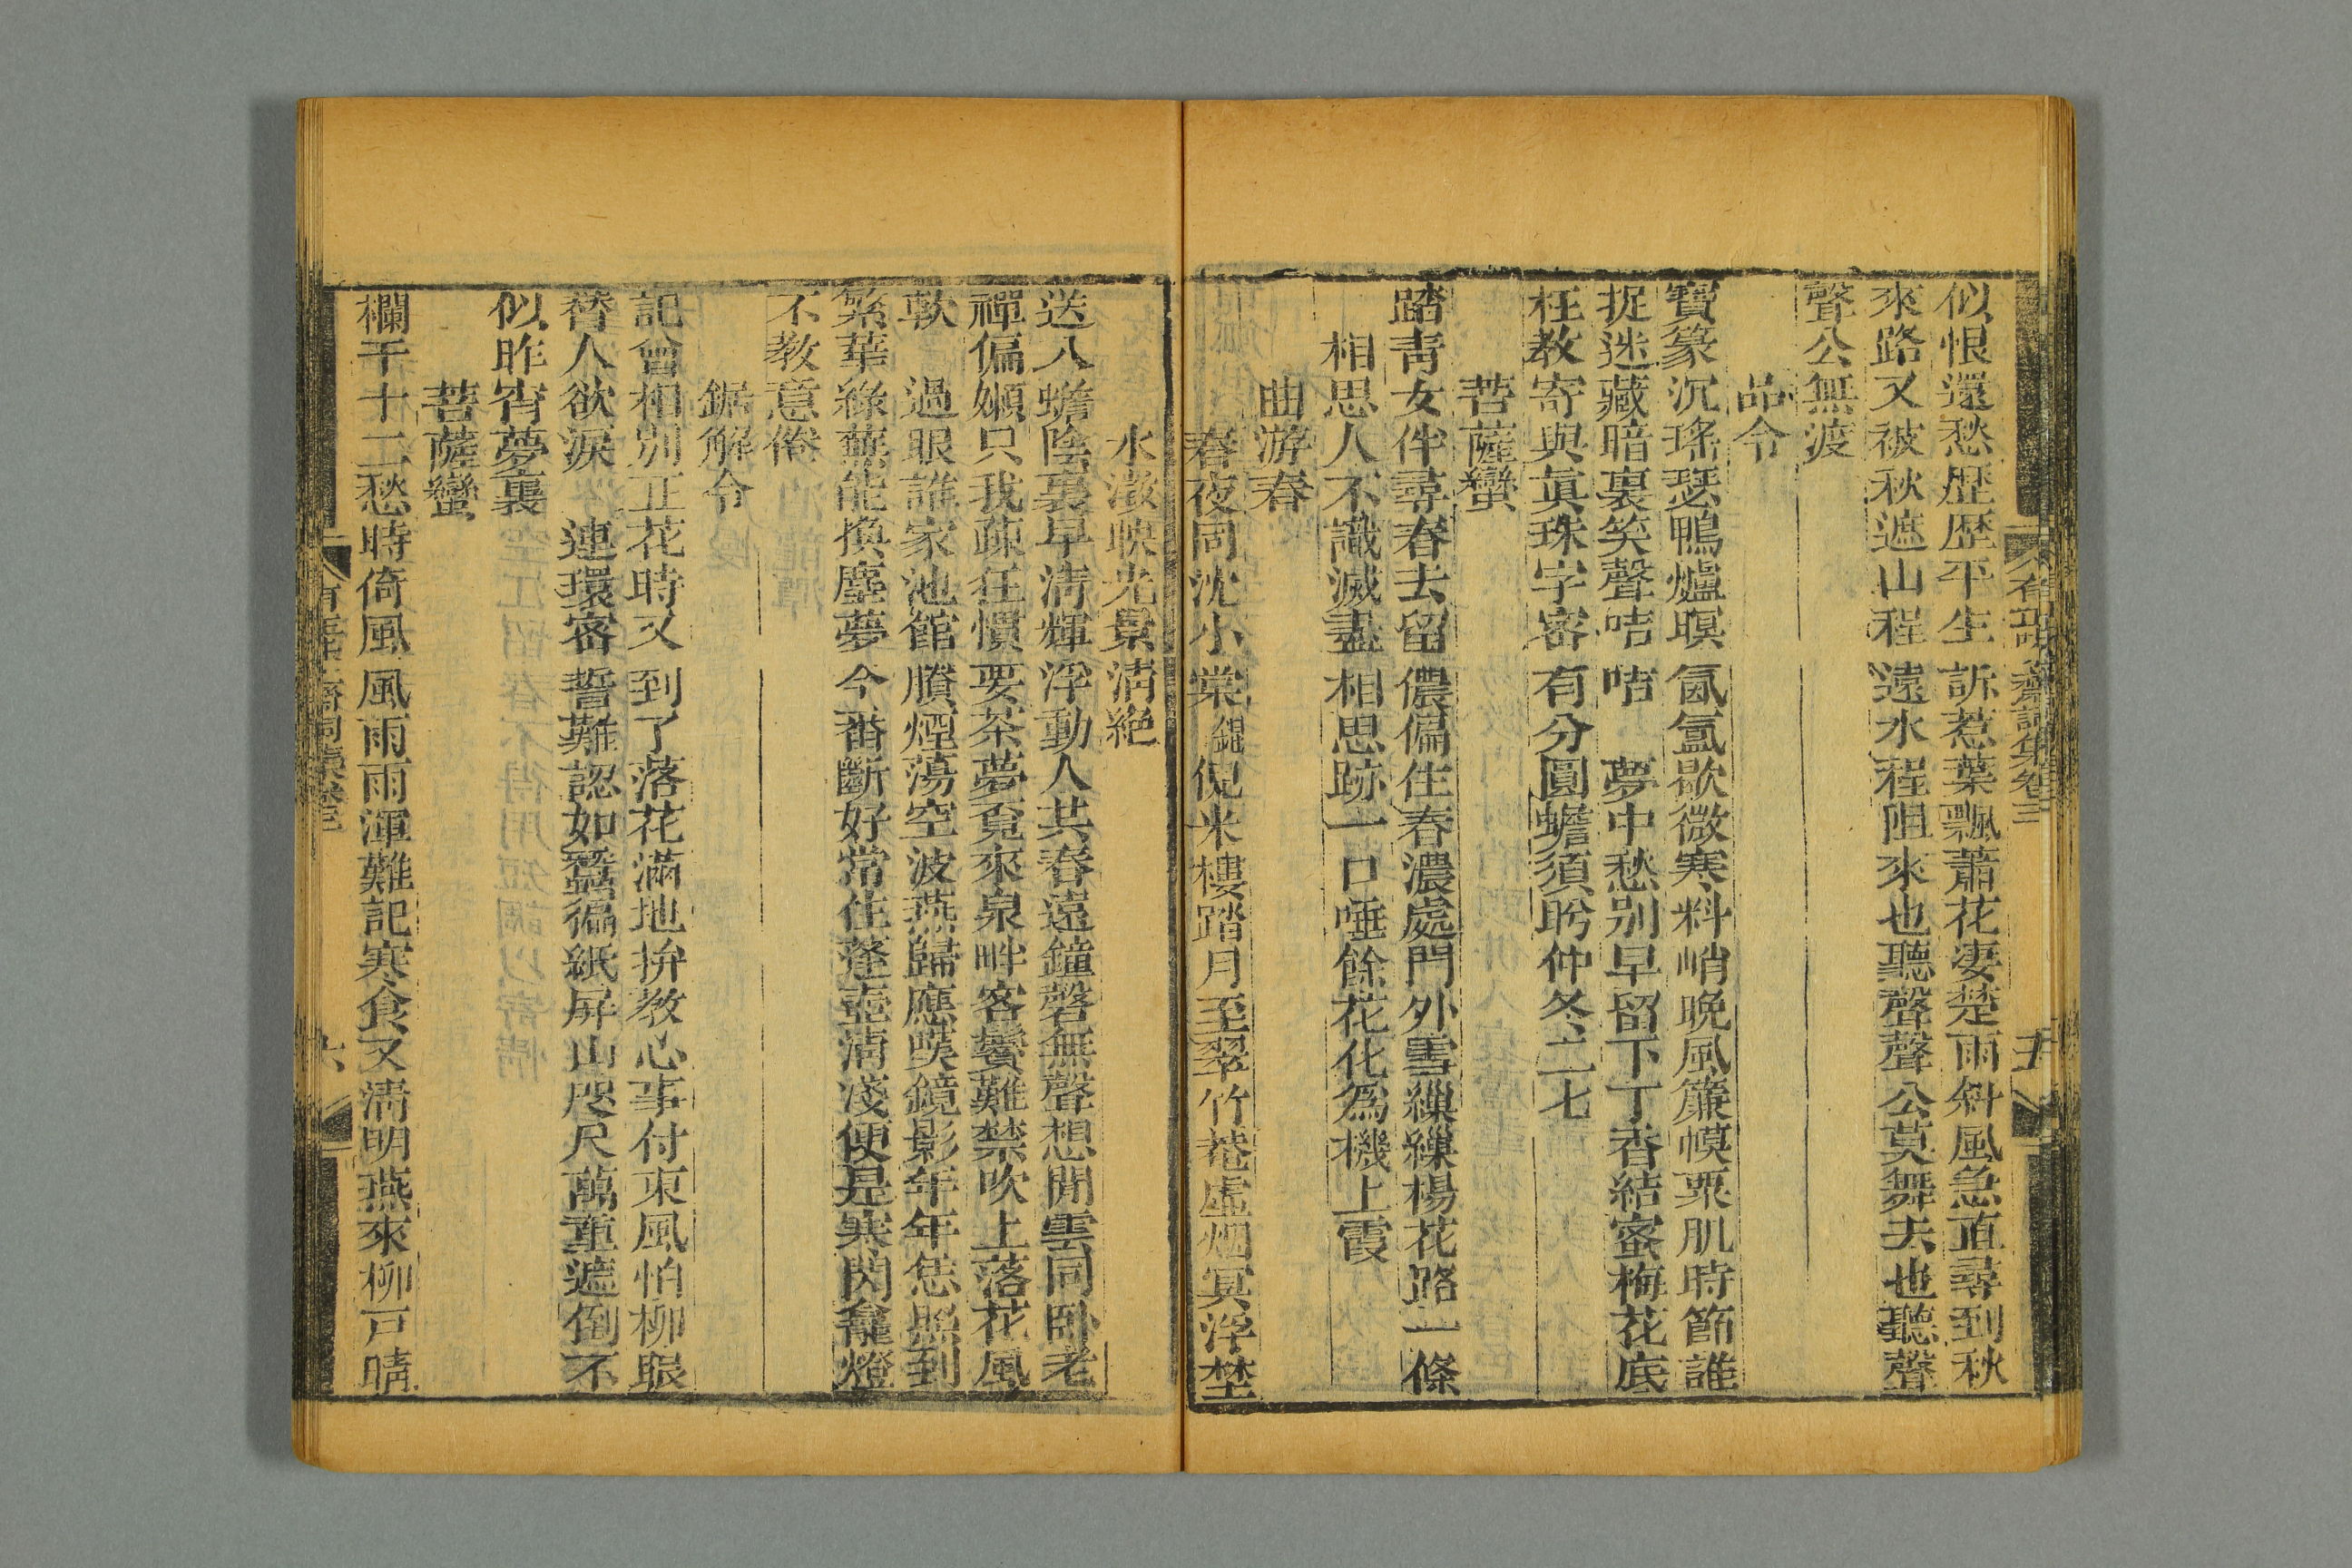 似恨還愁歷歷平生　訴惹葉飄蕭花凄楚雨斜風急直尋到秋
來路又被秋遮山程　遠水程阻來也聽聲聲公莫舞去也聽聲
聲公無渡
品令
寶篆沉瑤瑟鴨爐暝　氤氳歇微寒料峭晚風簾幙栗肌時節誰
捉迷藏暗裏笑聲咭　咭　夢中愁別早留下丁香結蜜梅花底
枉教寄與眞珠字密　有分圓蟾須盻仲冬二七
菩薩蠻
踏青女伴尋春去留　儂偏住春濃處門外雪繅繅楊花路一條
相思人不識滅盡　相思跡一口唾餘花化爲機上霞
曲游春
春夜同沈小棠錕倪米樓踏月至翠竹菴虛烟冥浮埜
水澂映光景淸絶
送入蟾陰裏早淸輝　浮動人共春遠鐘磬無聲想閒雲同卧老
禪偏嬾只我疎狂慣　要茶夢覔來泉畔客鬢難禁吹上落花風
軟　過眼誰家池館　賸煙蕩空波燕歸應嘆鏡影年年恁照到
繁華綠蕪能換塵夢　今番斷好常住蓬壺淸淺便是寒閃龕燈
不教意倦
鋸解令
記曾相別正花時又　到了落花滿地拚教心事付東風怕柳眼
替人欲淚　連環密　誓難認如蠶徧紙屏山咫尺萬重遮倒不
似昨宵夢裏
菩薩蠻
欄干十二愁時倚風　風雨雨渾難記寒食又淸明燕來柳戸晴
齋詞集卷三
五
六